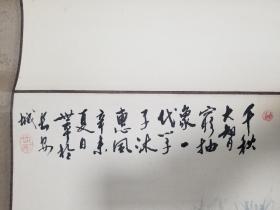 千秋
大智
抽
象一
代学
子沐
惠风
辛未
夏日
於
長安
城